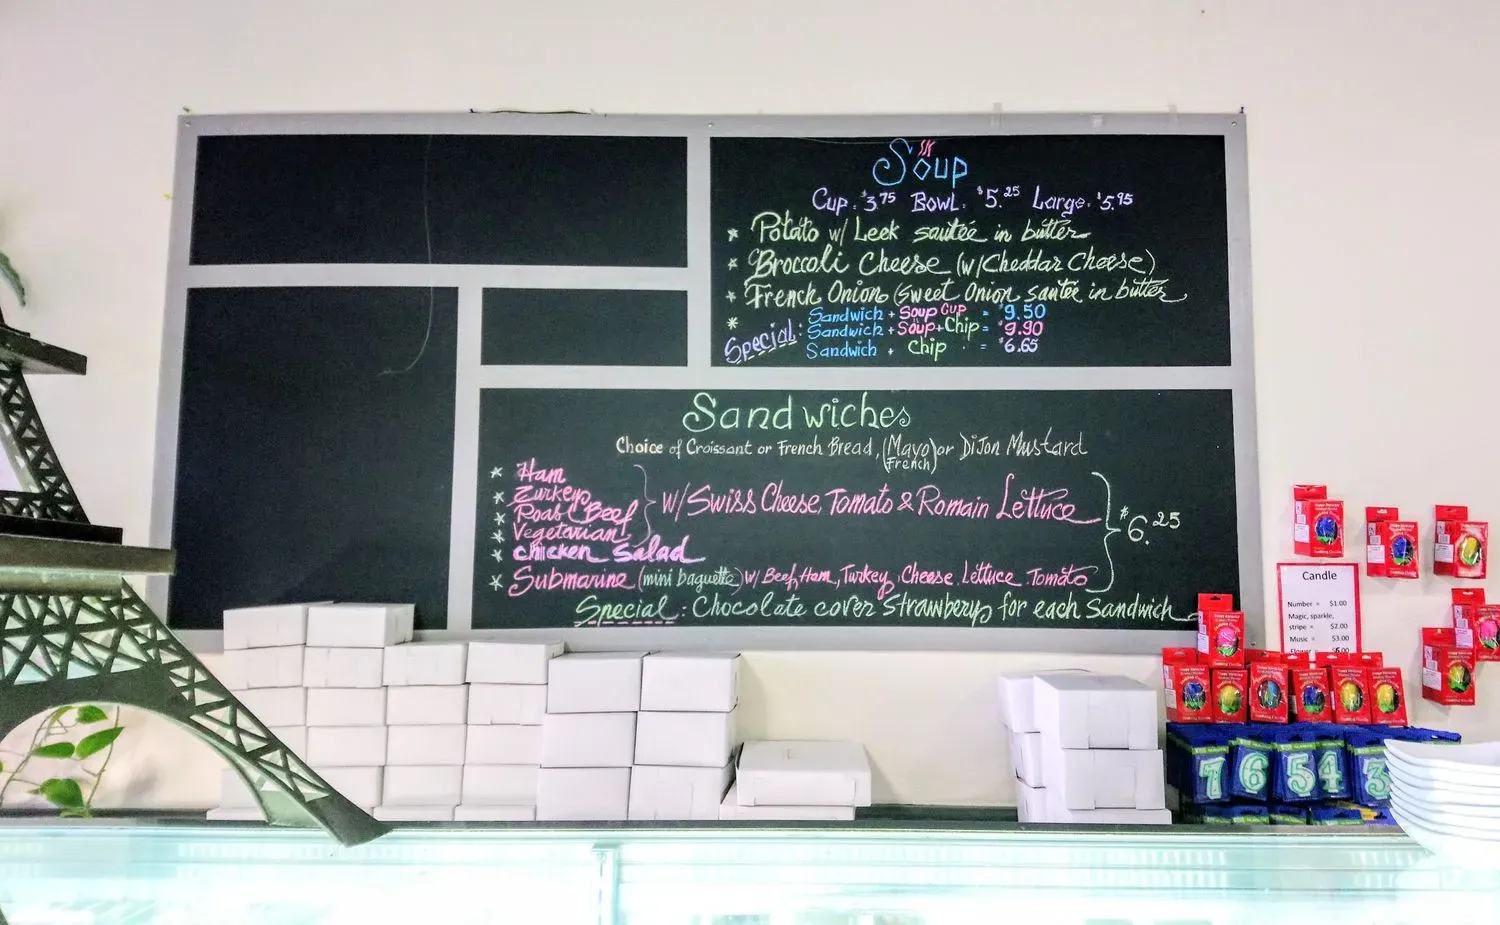 Soup
Cup. $3.75 Bowl. $5.25 Large. $5.95
* Potato w/ Leek sautée in butter
* Broccoli Cheese (w/Cheddar Cheese)
* French Onion (sweet Onion sautée in butter
* Special: Sandwich + Soup Cup = $9.50
Sandwich + Soup + Chip = $9.90
Sandwich + Chip = $6.65
Sandwiches
Choice of Croissant or French Bread, (Mayo French) or Dijon Mustard
* Ham
* Turkey
* Roast Beef
* Vegetarian
w/ Swiss Cheese, Tomato & Romain Lettuce
$6.25
* Chicken Salad
* Submarine (mini baguette) w/ Beef, Ham, Turkey, Cheese, Lettuce Tomato
Special: Chocolate cover Strawbery for each Sandwich
Candle
Number = $1.00
Magic, sparkle,
stripe = $2.00
Music = $3.00
Flower = $6.00
7 6 5 4 3